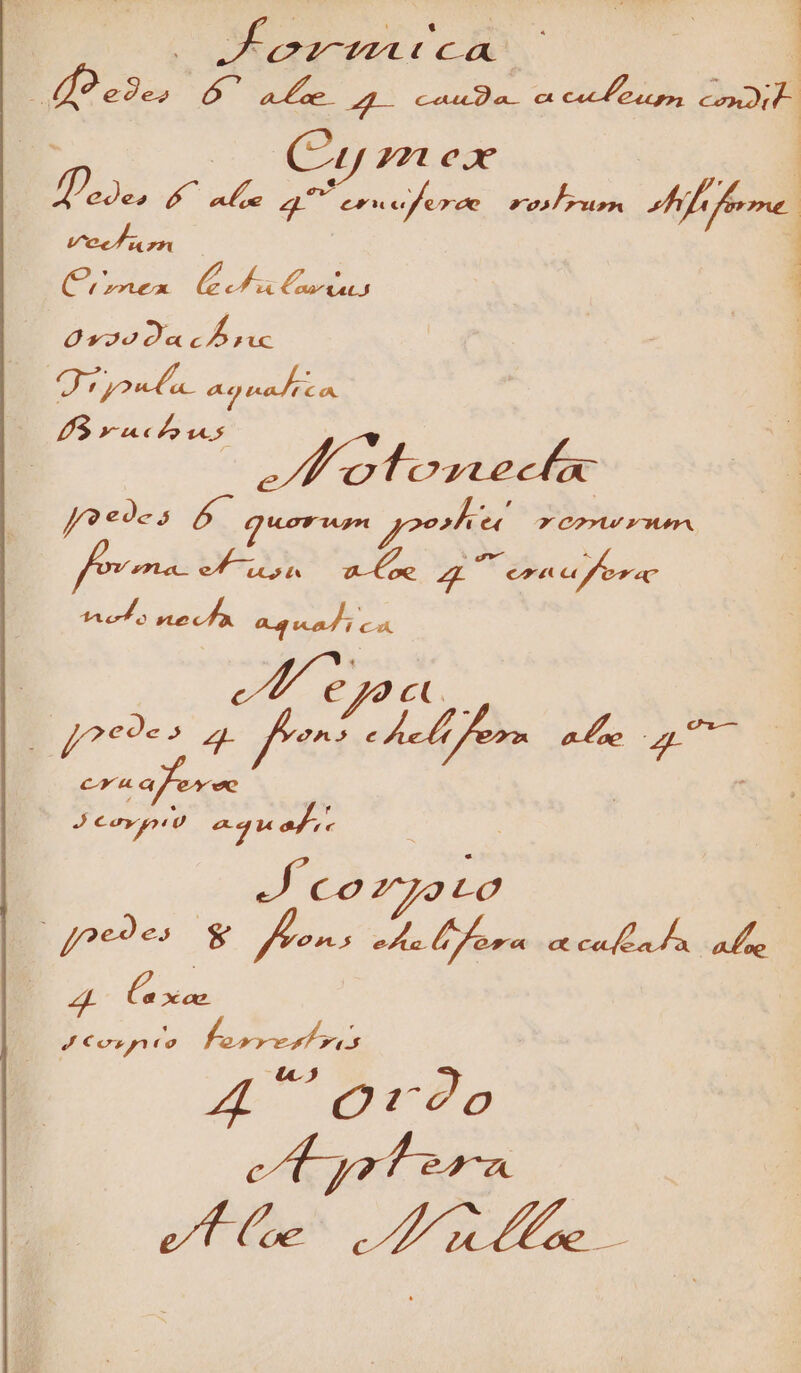 Formica
Pedes 6 alœ 4 cauda aculeum condit
Cymex
Pedes 6 alœ 4or cruciferœ rostrum stiliforme
rectum
Cimex lectularius
Orsodachne
Tipula aquatica
Bruchus
Notonecta
pedes 6 quorum postici remorum
forma et usu alœ 4or cruciferœ
notonecta aquatica
Nepa
pedes 4 frons chelifera alœ 4or
cruciferœ
scorpio aquatic
Scorpio
pedes 8 frons chelifera aculeata alœ
4 laxœ
scorpio terrestris
4us ordo
Aptera
Alœ Nullœ